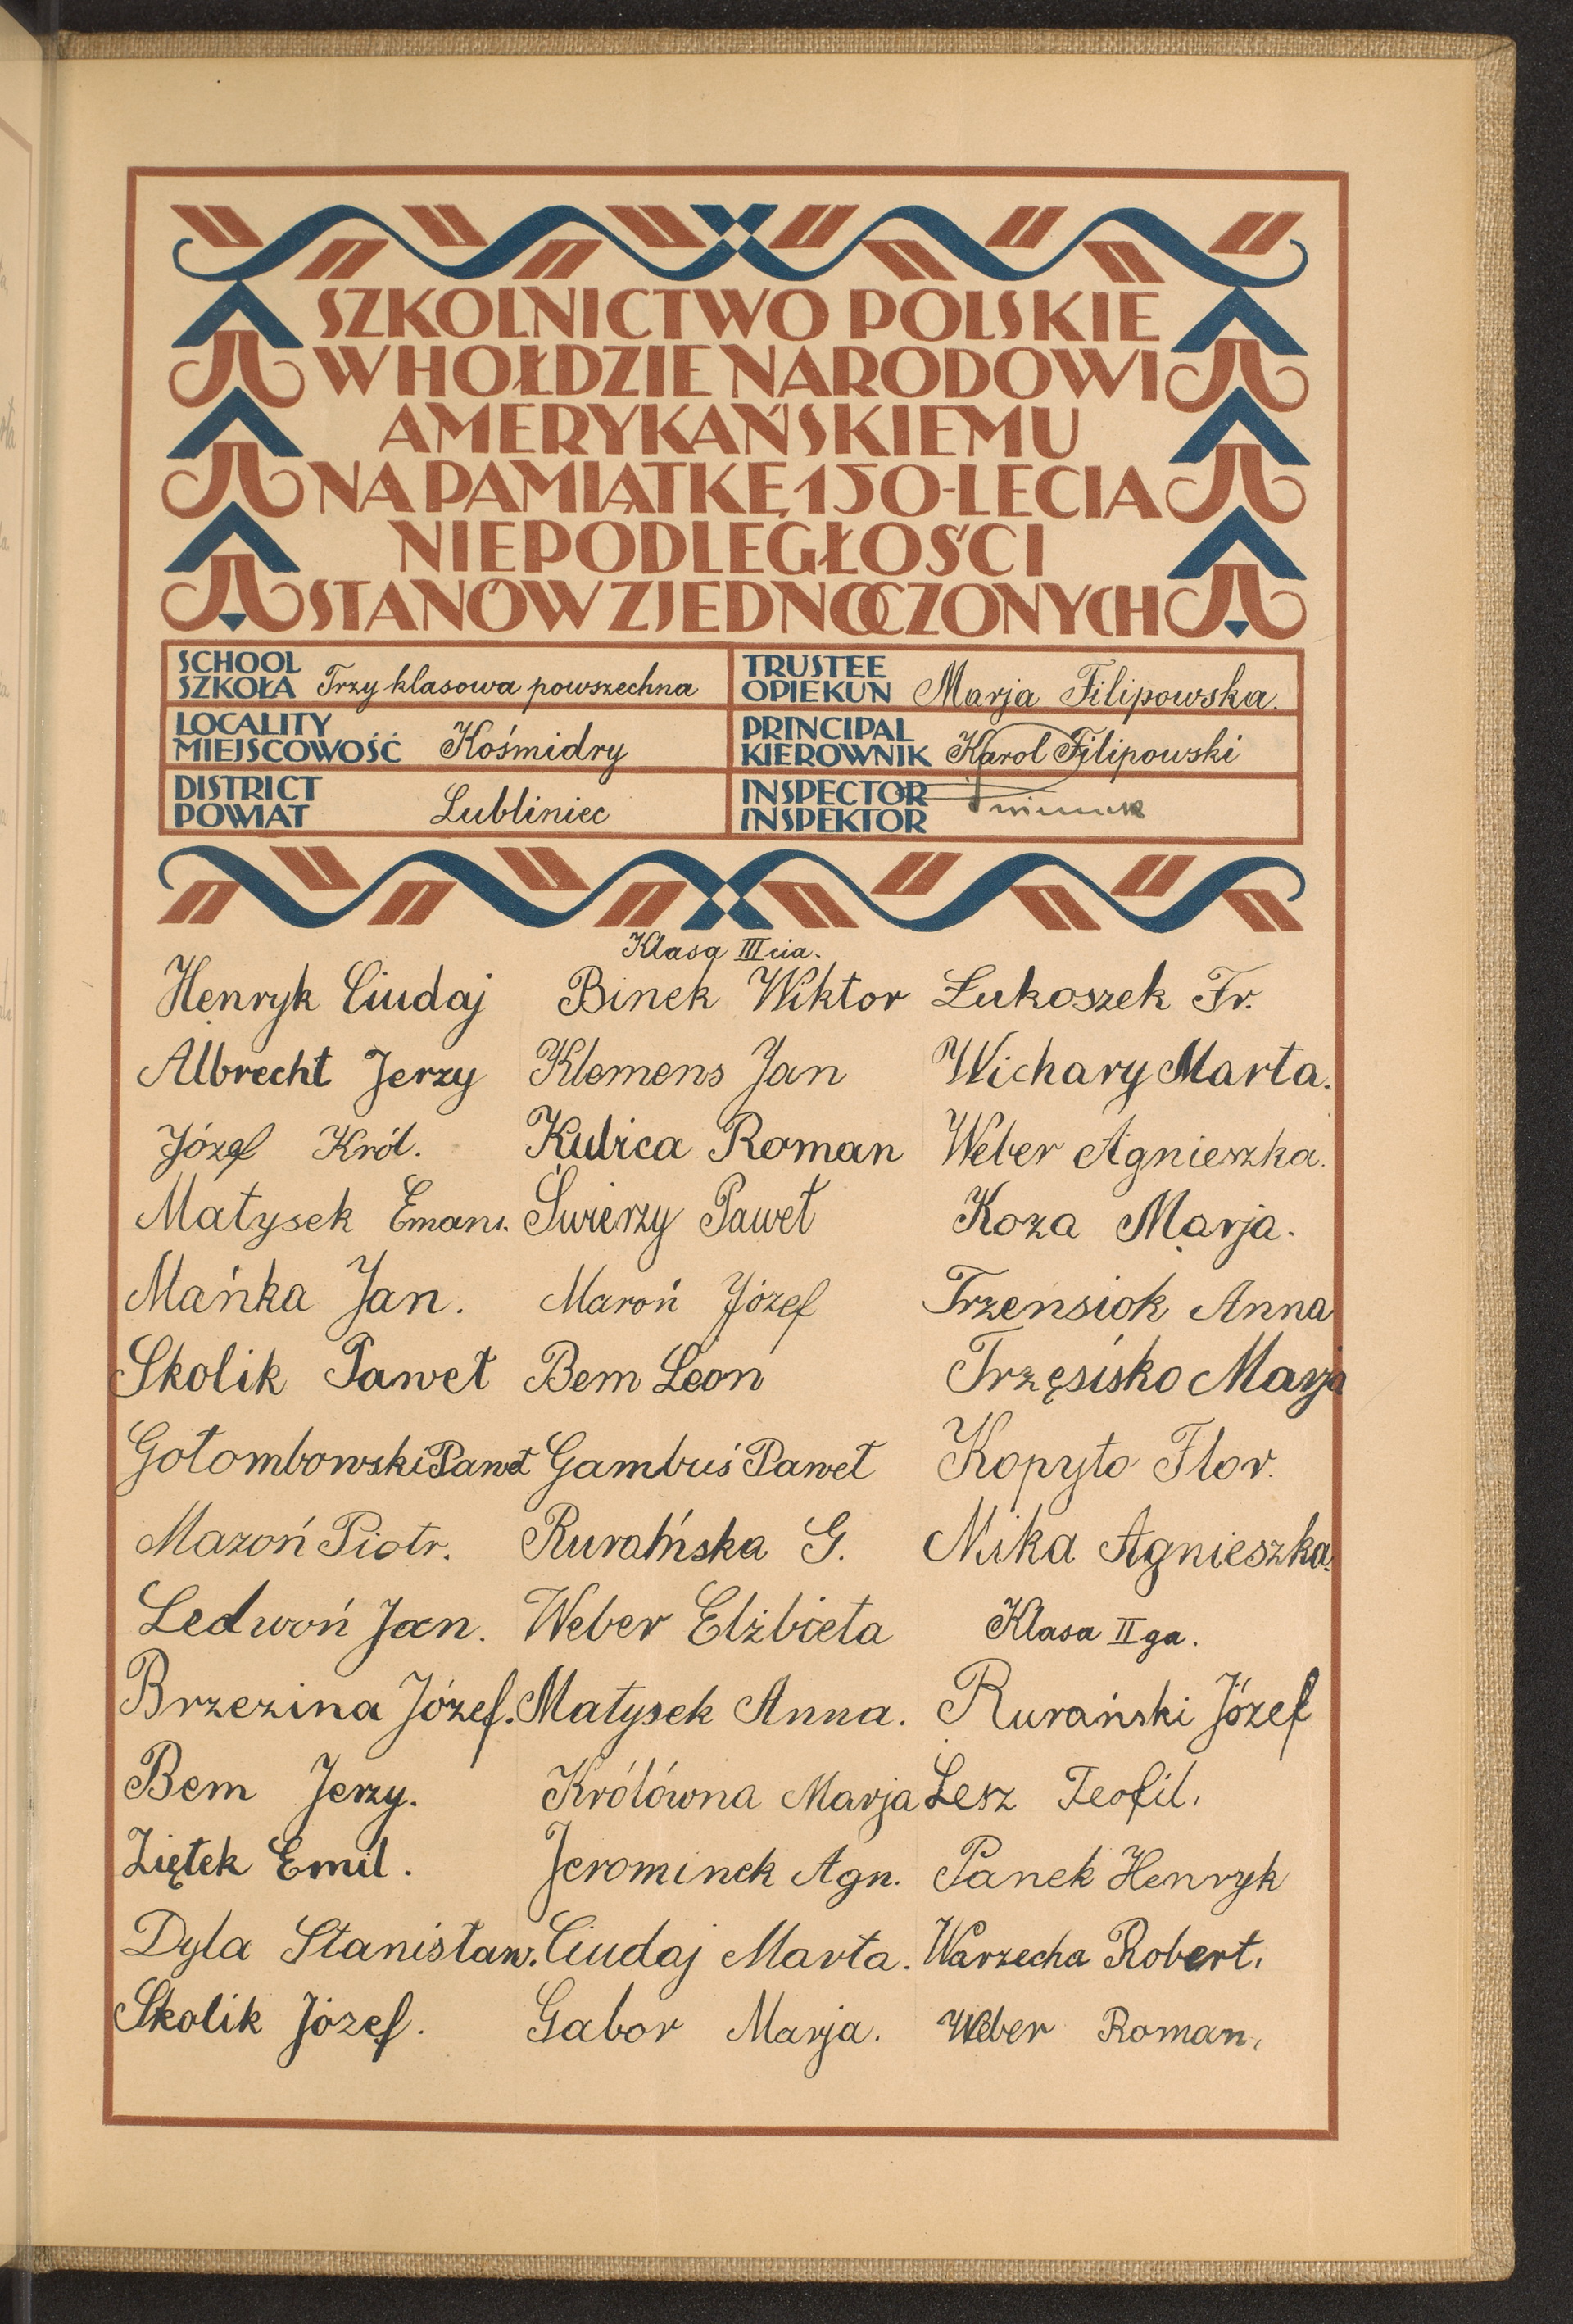 SZKOLNICTWO POLSKIE
W HOŁDZIE NARODOWI
AMERYKAŃSKIEMU
NA PAMIĄTKĘ 150-LECIA
NIEPODLEGŁOŚCI
STANÓW ZJEDNOCZONYCH
SCHOOL
SZKOŁA Trzy klasowa powszechna
TRUSTEE
OPIEKUN Marja Filipowska.
LOCALITY
MIEJSCOWOŚĆ Kośmidry
PRINCIPAL
KIEROWNIK Karol Filipowski
DISTRICT
POWIAT Lubliniec
INSPECTOR
INSPEKTOR
Klasa III cia.
Henryk Ciudaj
Albrecht Jerzy
Józef Król.
Małysek Eman.
Mańka Jan.
Skolik Paweł
Gołombowski Paweł
Mazoń Piotr.
Ledwoń Jan.
Brzezina Józef.
Bem Jerzy.
Ziętek Emil.
Dyla Stanisław.
Skolik Józef.
Binek Wiktor
Klemens Jan
Kubica Roman
Świerzy Paweł
Maroń Józef
Bem Leon
Gambuś Paweł
Rurańska G.
Weber Elżbieta
Małysek Anna.
Królówna Marja
Jerominek Agn.
Ciudaj Marta.
Gabor Marja.
Lukoszek Fr.
Wichary Marta.
Weber Agnieszka.
Koza Marja.
Trzensiok Anna
Trzęsisko Marja
Kopyto Flor.
Nika Agnieszka.
Klasa II ga.
Rurański Józef
Lesz Teofil.
Panek Henryk
Warzecha Robert.
Weber Roman.